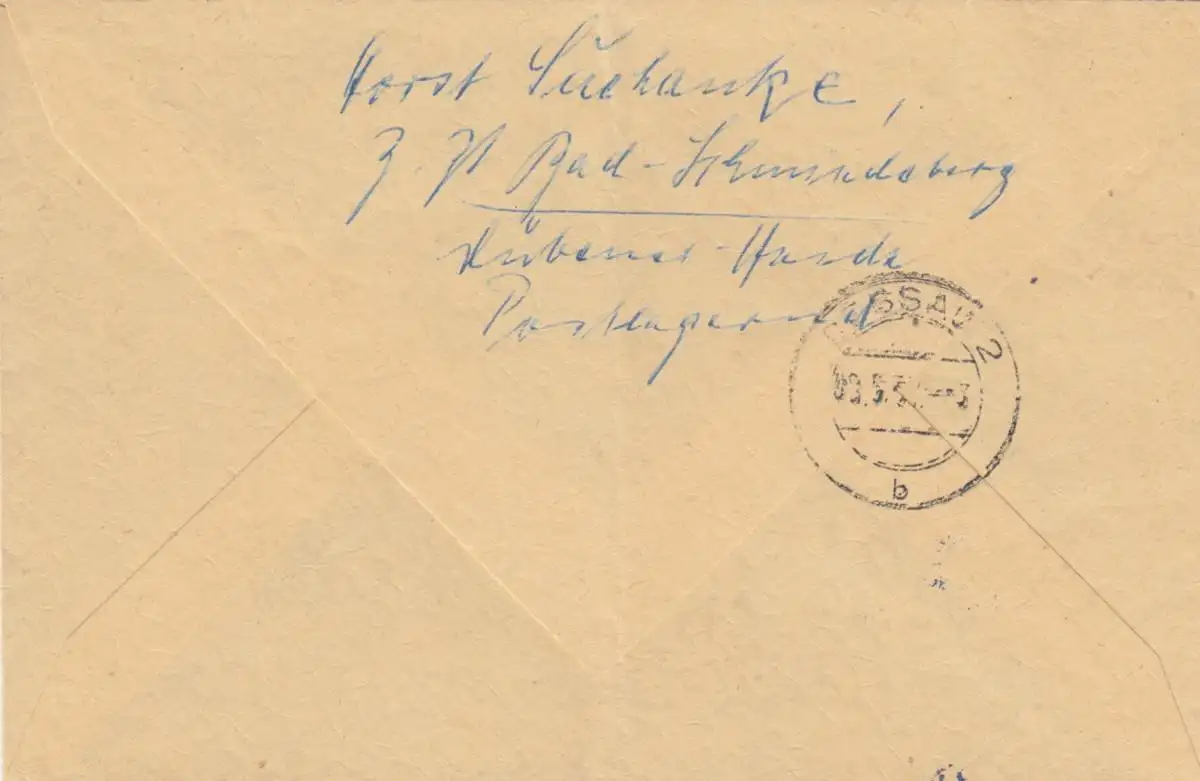 Horst Suchanke,
Z. Zt Bad-Schmiedeberg
Dübener-Heide
Postlagernd
SSAU 2
b